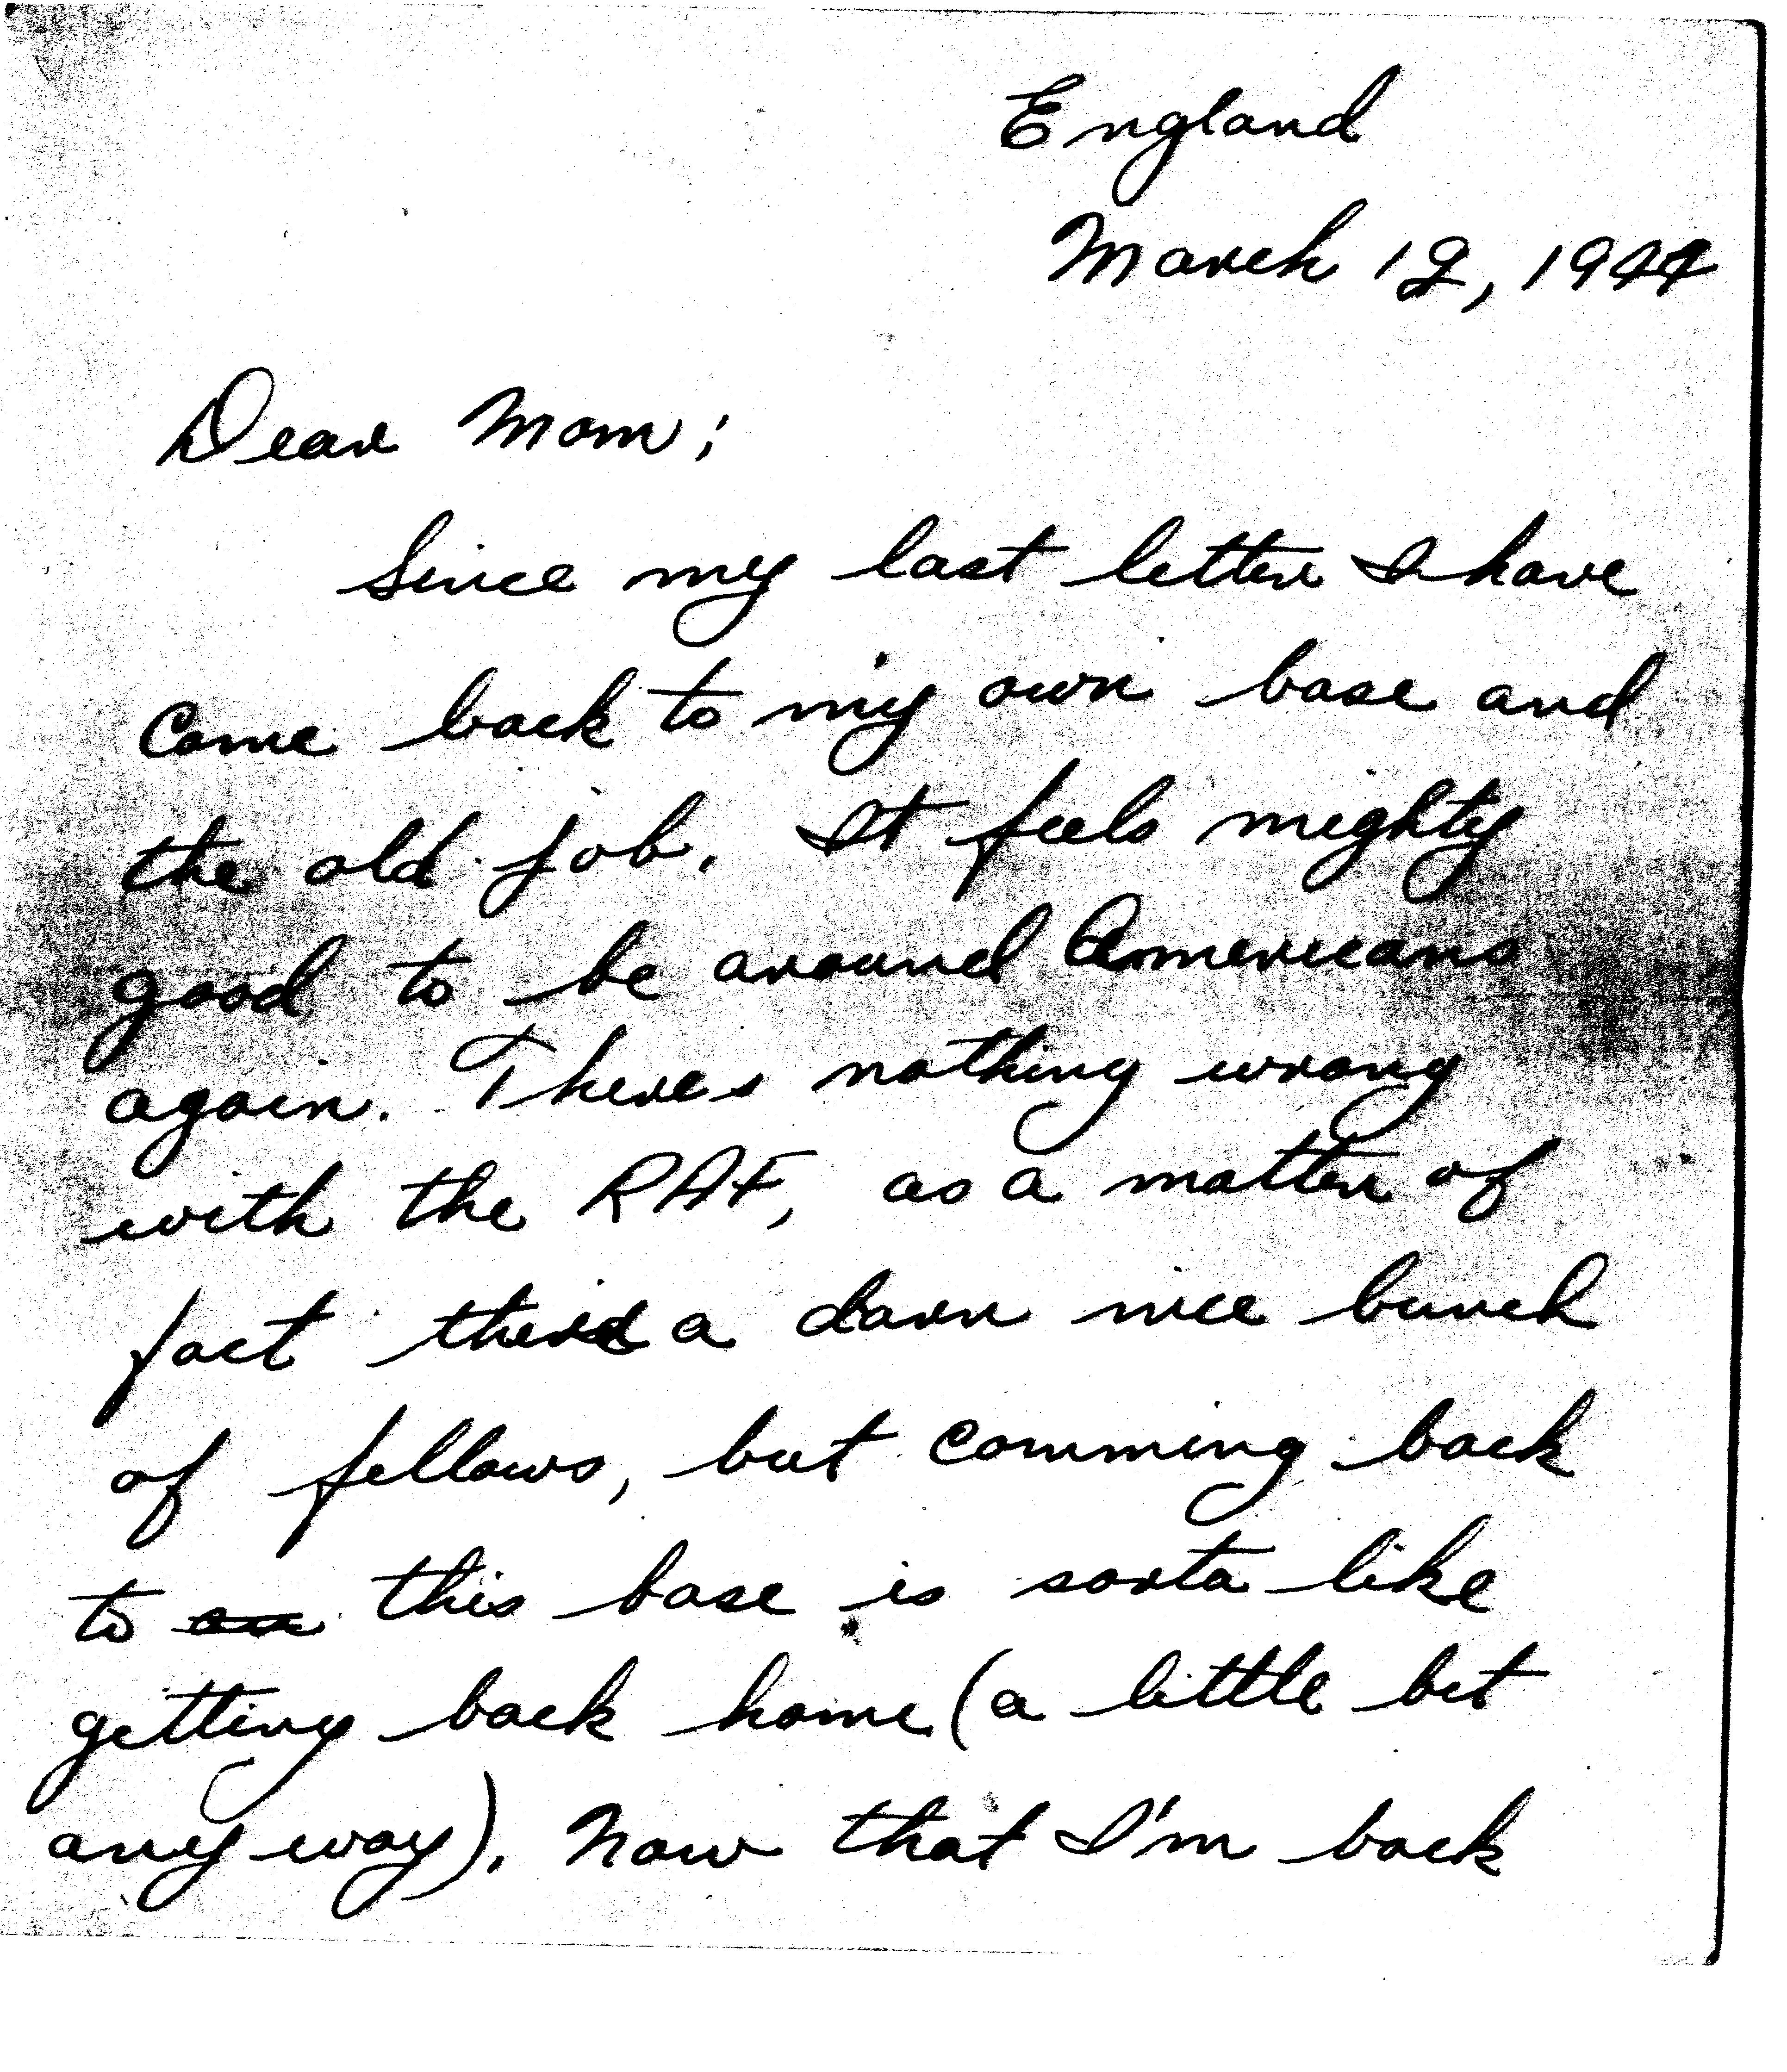 England
March 12, 1944
Dear Mom;
Since my last letter I have
come back to my own base and
the old job. It feels mighty
good to be around Americans
again. Theres nothing wrong
with the RAF, as a matter of
fact a darn nice bunch
of fellows, but comming back
to this base is sorta like
getting back home (a little bit
any way). Now that I'm back